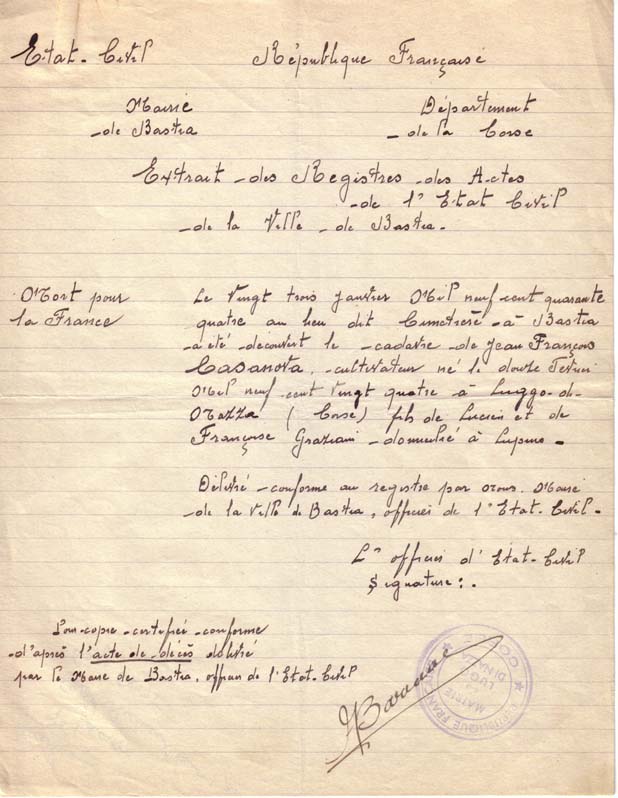 Etat-Civil République Française
Mairie Département
de Bastia de la Corse
Extrait des Registres des Actes
de l'Etat Civil
de la Ville de Bastia.
Mort pour
la France
Le vingt trois janvier Mil neuf cent quarante
quatre au lieu dit Cimetière à Bastia
a été découvert le cadavre de Jean François
Casanova, cultivateur né le douze Février
Mil neuf cent vingt quatre à Luggo-di-
Nazza (Corse) fils de Lucien et de
Françoise Graziani domicilié à Lupino.
Délivré conforme au registre par nous Maire
de la Ville de Bastia, officier de l'Etat-Civil.
L' officier d'Etat-Civil
Signature:.
Pour copie certifiée conforme
d'après l'acte de décès délivré
par le Maire de Bastia, officier de l'Etat-Civil
MAIRIE
REPUBLIQUE FRANC